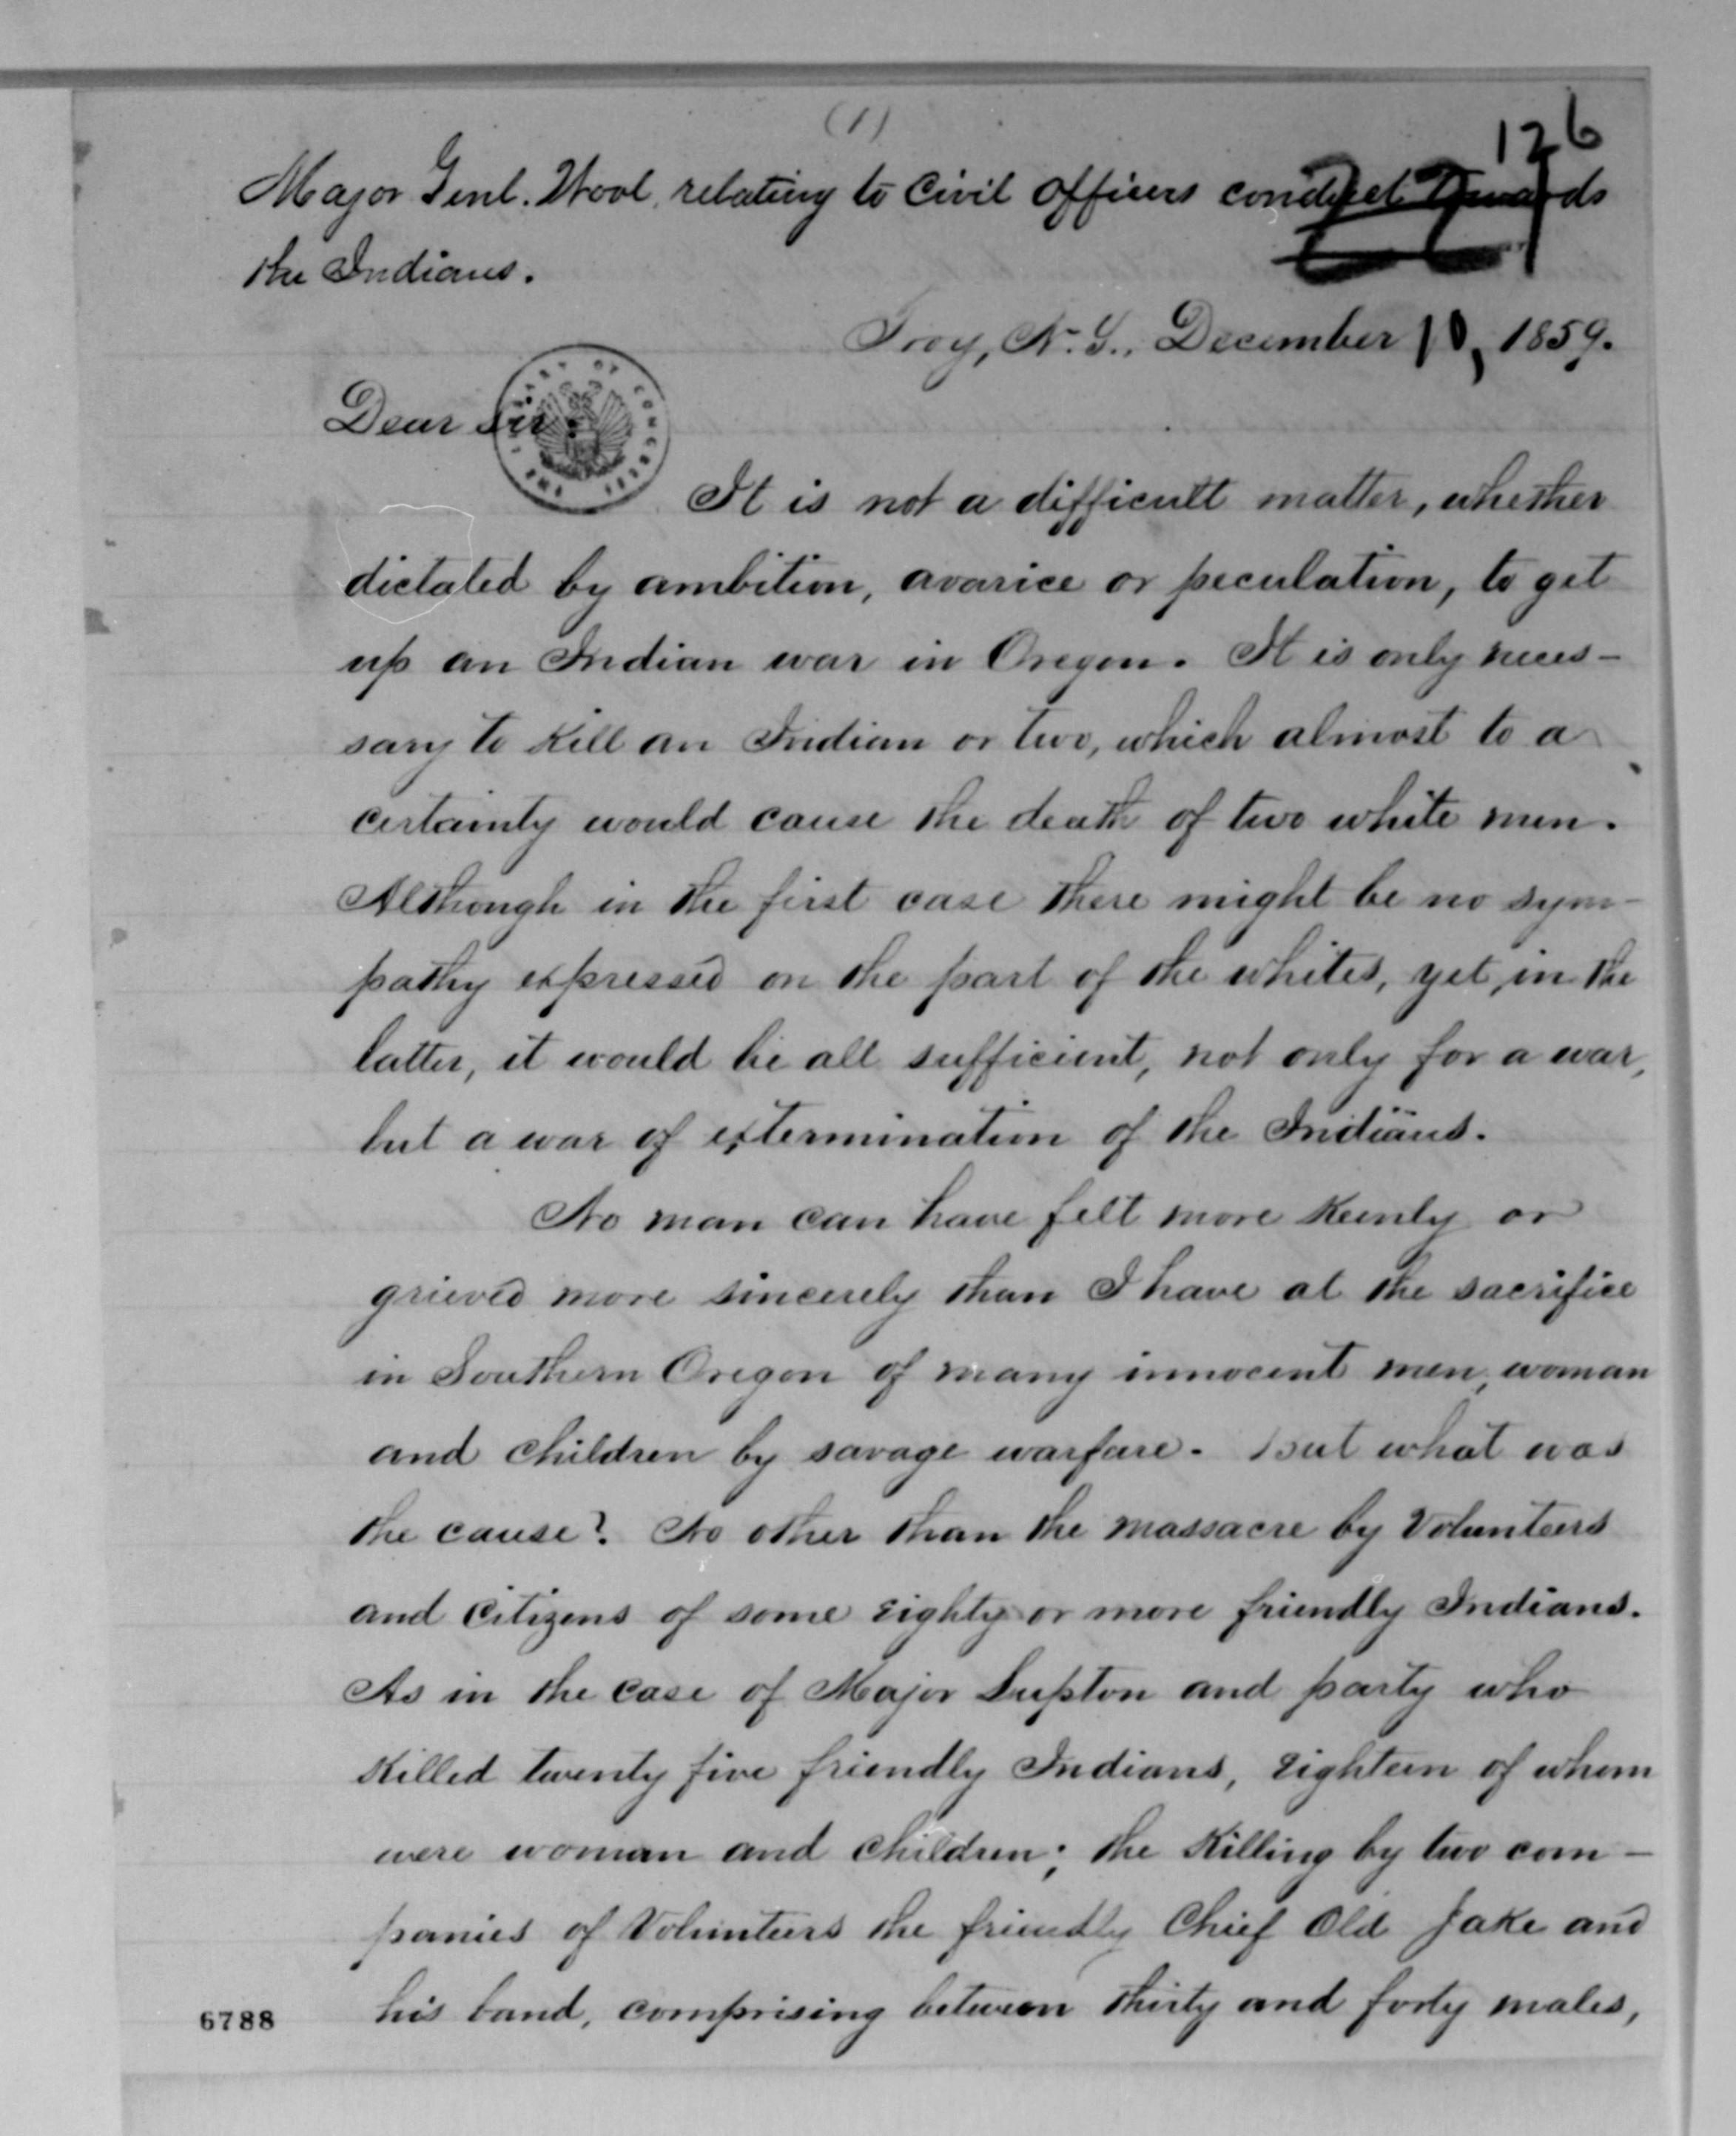 (1)
126
Major Genl. Wool, relating to Civil Officers conduct Towards
the Indians.
Troy, N. Y., December 10, 1859.
Dear Sir:
It is not a difficult matter, whether
dictated by ambition, avarice or peculation, to get
up an Indian war in Oregon. It is only neces-
sary to Kill an Indian or two, which almost to a
certainty would cause the death of two white men.
Although in the first case there might be no sym-
pathy expressed on the part of the whites, yet, in the
latter, it would be all sufficient, not only for a war,
but a war of extermination of the Indians.
No man can have felt more Keenly or
grieved more sincerely than I have at the sacrifice
in Southern Oregon of many innocent men, woman
and children by savage warfare. But what was
the cause? No other than the massacre by Volunteers
and citizens of some eighty or more friendly Indians.
As in the case of Major Lupton and party who
Killed twenty five friendly Indians, eighteen of whom
were woman and children; the Killing by two com-
panies of Volunteers the friendly Chief Old Jake and
his band, comprising between thirty and forty males,
6788